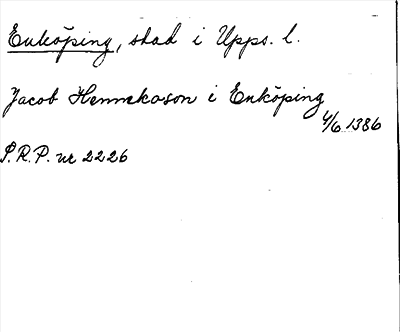 Enköping, stad i Upps. l.
Jacob Hennekason i Enköping
4/6 1386
S.R.P. nr 2226